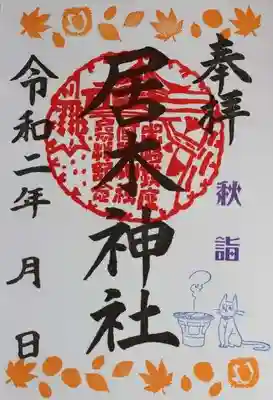 奉拝
秋詣
居木神社
令和二年 月 日